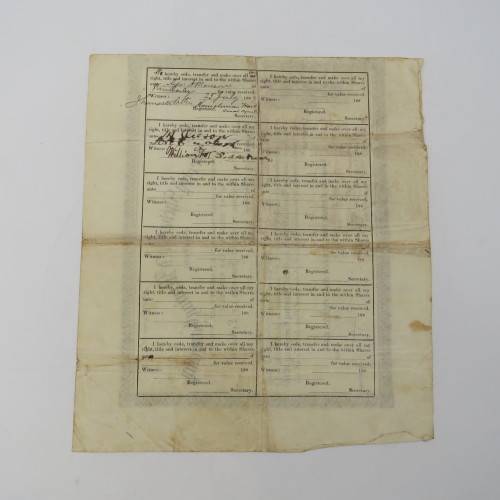 I hereby cede, transfer and make over all my
right, title and interest in and to the within Shares
Kimberley
for value received.
Witness: July 188
Registered.
I hereby cede, transfer and make over all my
right, title and interest in and to the within Shares
unto of
for value received.
Witness: 188
Registered.
William
Registered.
Secretary.
I hereby cede, transfer and make over all my
right, title and interest in and to the within Shares
unto of
for value received.
Witness: 188
Registered.
Secretary.
I hereby cede, transfer and make over all my
right, title and interest in and to the within Shares
unto of
for value received.
Witness: 188
Registered.
Secretary.
I hereby cede, transfer and make over all my
right, title and interest in and to the within Shares
unto of
for value received.
Witness: 188
Registered.
Secretary.
I hereby cede, transfer and make over all my
right, title and interest in and to the within Shares
of
for value received.
Witness: 188
Registered.
Secretary.
I hereby cede, transfer and make over all my
right, title and interest in and to the within Shares
unto of
for value received.
Witness: 188
Registered.
Secretary.
I hereby cede, transfer and make over all my
right, title and interest in and to the within Shares
unto of
for value received.
Witness: 188
Registered.
Secretary.
I hereby cede, transfer and make over all my
right, title and interest in and to the within Shares
unto of
for value received.
Witness: 188
Registered.
Secretary.
I hereby cede, transfer and make over all my
right, title and interest in and to the within Shares
unto of
for value received.
Witness: 188
Registered.
Secretary.
I hereby cede, transfer and make over all my
right, title and interest in and to the within Shares
unto of
for value received.
Witness: 188
Registered.
Secretary.
I hereby cede, transfer and make over all my
right, title and interest in and to the within Shares
unto of
for value received.
Witness: 188
Registered.
Secretary.